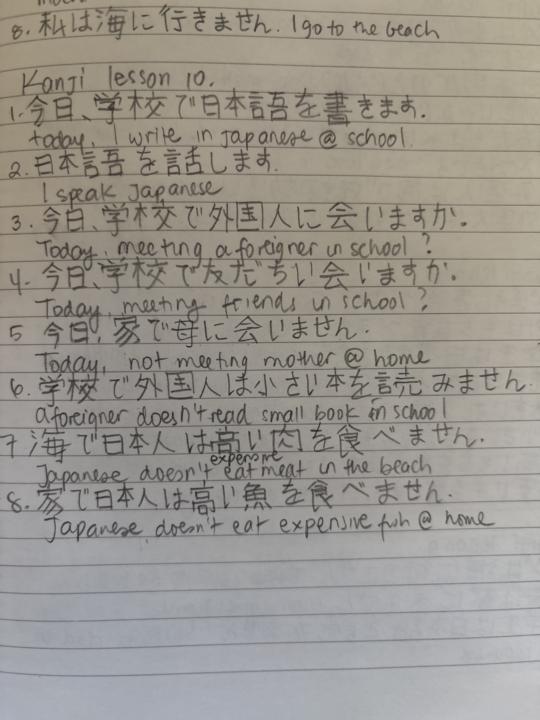 8. 私は海に行きません. I go to the beach
Kanji lesson 10.
1. 今日、学校で日本語を書きます.
today, I write in Japanese @ school.
2. 日本語を話します.
I speak Japanese
3. 今日、学校で外国人に会いますか.
Today, meeting a foreigner in school?
4. 今日、学校で友だちい会いますか.
Today, meeting friends in school?
5 今日、家で母に会いません.
Today, not meeting mother @ home
6. 学校で外国人は小さい本を読みません.
a foreigner doesn't read small book in school
7 海で日本人は高い肉を食べません.
expensive
Japanese doesn't eat meat in the beach
8. 家で日本人は高い魚を食べません.
Japanese doesn't eat expensive fish @ home